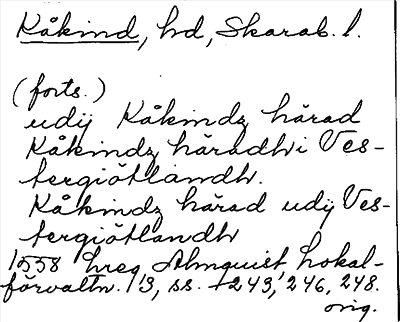 Kåkind, hd, Skarab. l.
(forts.)
udij Kåkindz härad
Kåkindz häradh i Ves-
tergiötlandh.
Kåkindz härad udij Ves-
tergiötlandh
1558 hreg Almquist, Lokal-
förvaltn. 13, ss. 243, 246, 248.
orig.